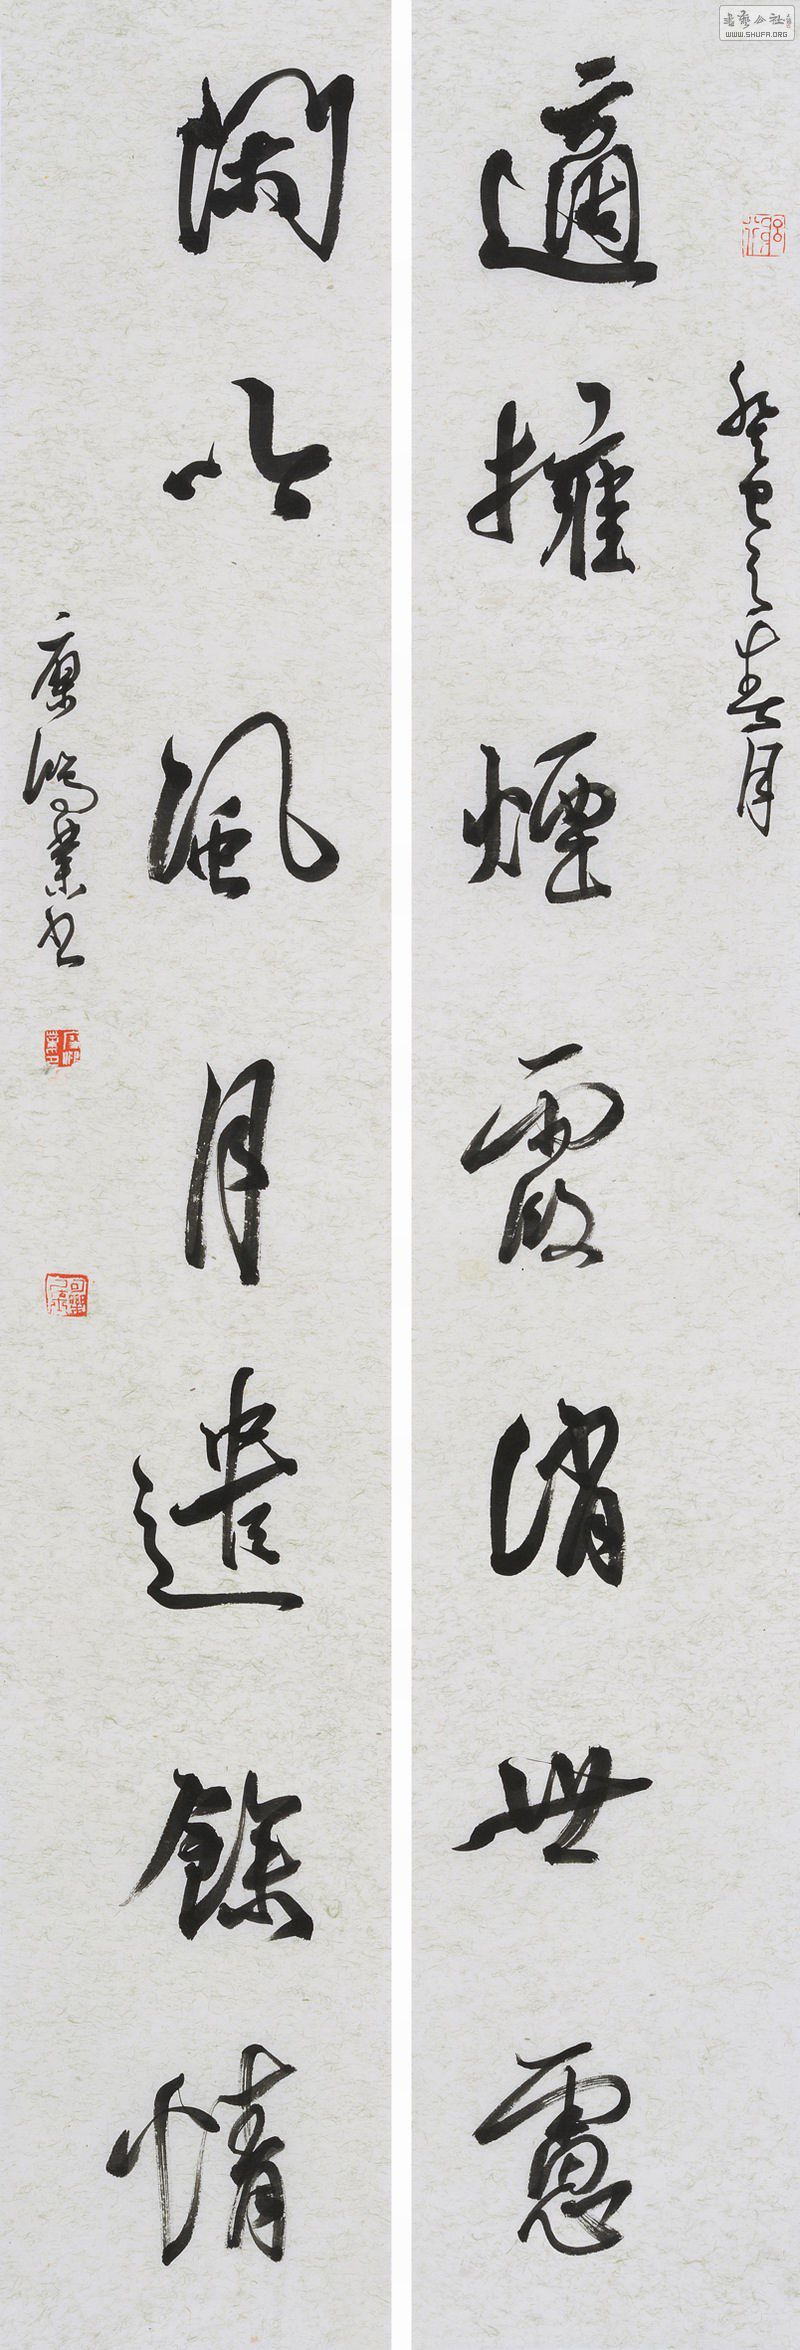 癸巳之春月
適擁煙霞消世慮
閑吟風月遣餘情
康鴻業書
書藝公社
WWW.SHUFA.ORG